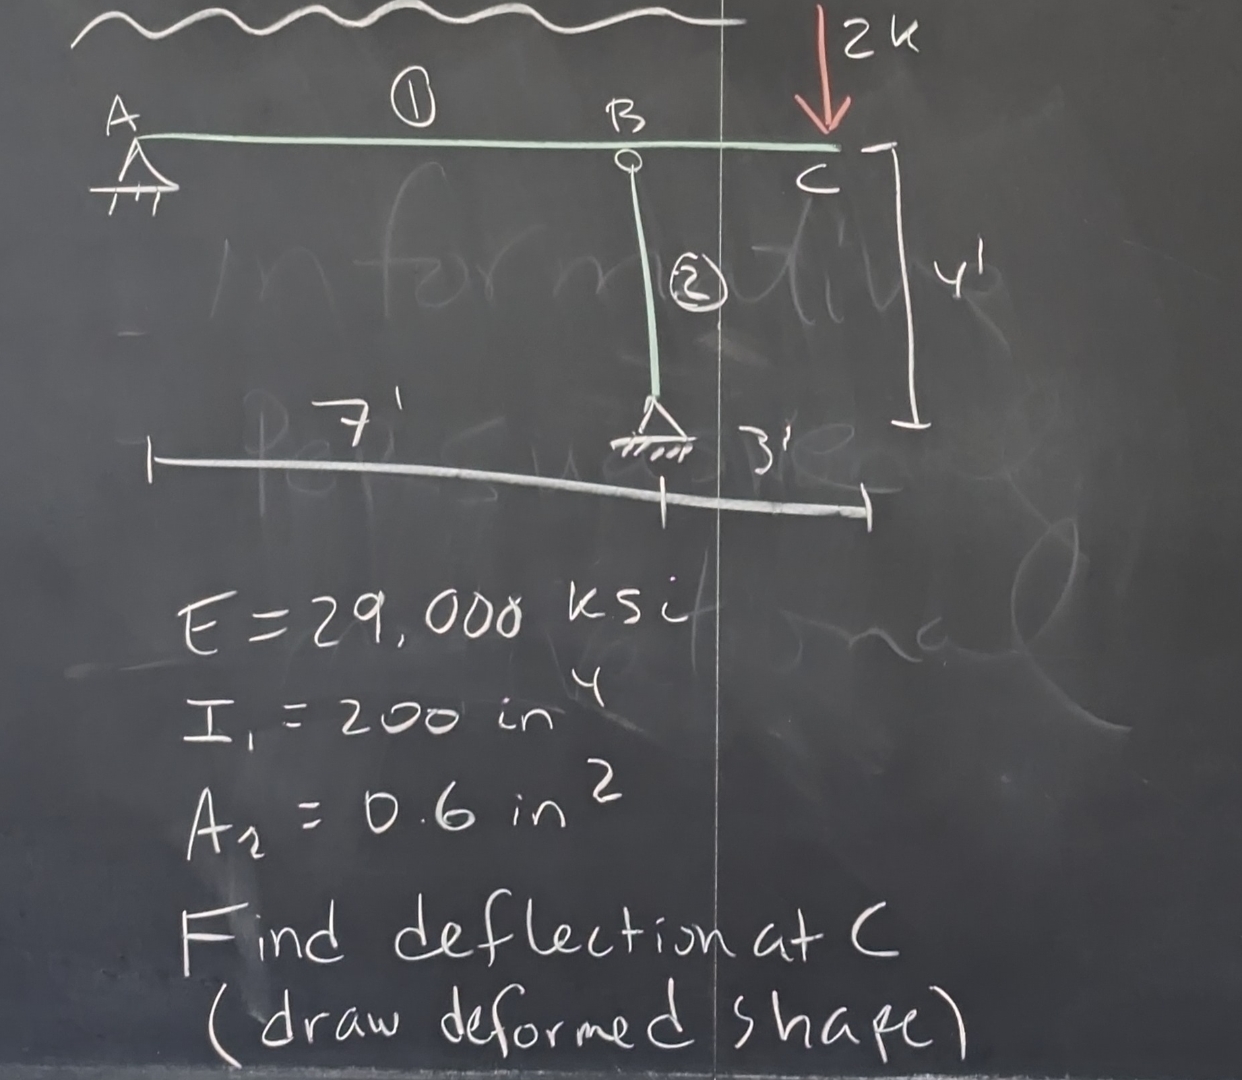 2k
A ① B
C
② 4'
7' 3'
E = 29,000 ksi
I₁ = 200 in⁴
A₂ = 0.6 in²
Find deflection at C
(draw deformed shape)